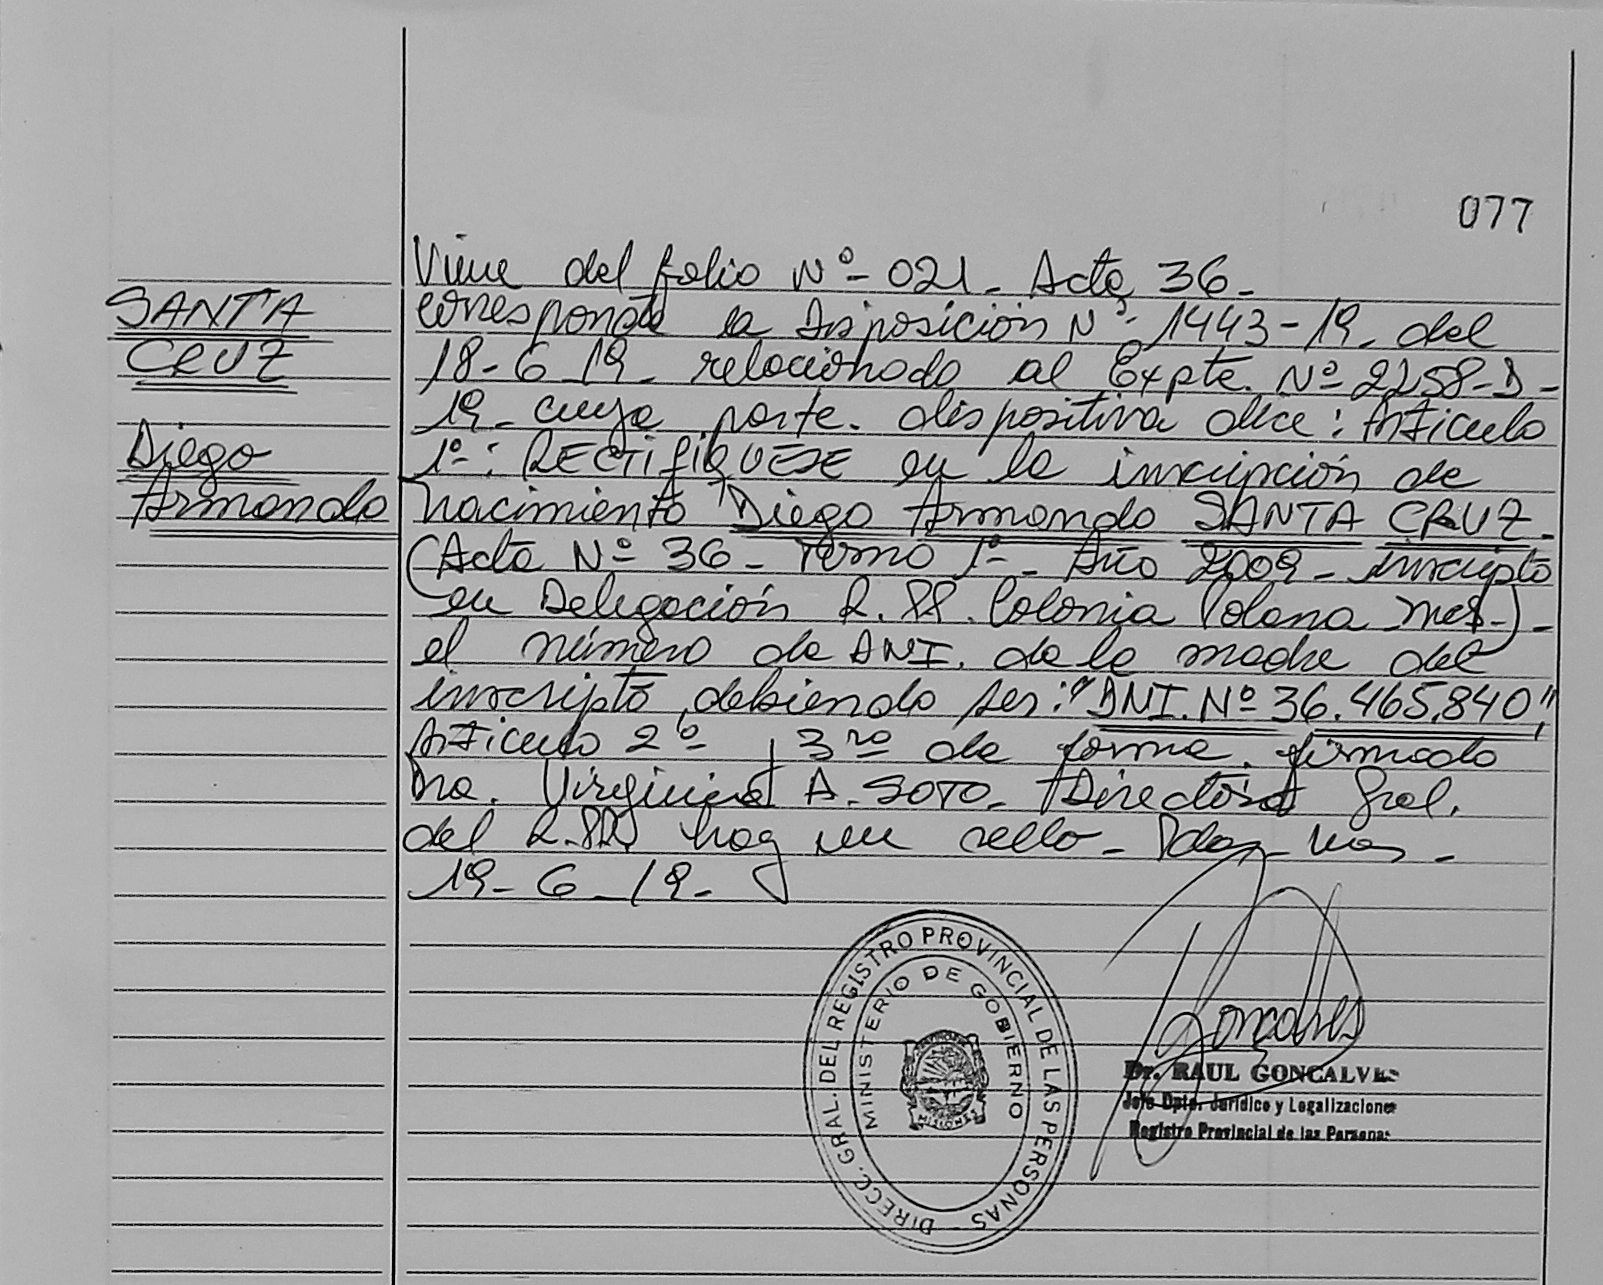 077
SANTA
CRUZ
Diego
Armando
Viene del folio Nº 021 - Acta 36 -
corresponde la Disposición Nº 1443-19 - del
18-6-19 - relacionado al Expte. Nº 2258-D-
19 - cuya parte dispositiva dice: Artículo
1º: RECTIFIQUESE en la inscripción de
nacimiento Diego Armando SANTA CRUZ -
(Acta Nº 36 - Tomo 1º - Año 2009 - inscripto
en Delegación R.PP. Colonia Polana Mes.) -
el número de DNI. de la madre del
inscripto, debiendo ser: "DNI. Nº 36.465.840",
Artículo 2º y 3ro de forma. firmado
Dra. Virginia A. SOTO - Directora Gral.
del R.PP. hay un sello - Pdas - Mes -
19-6-19 -
DIRECC. GRAL. DEL REGISTRO PROVINCIAL DE LAS PERSONAS
MINISTERIO DE GOBIERNO
MISIONES
Goncalves
Dr. RAUL GONCALVES
Jefe Dpto. Jurídico y Legalizaciones
Registro Provincial de las Personas